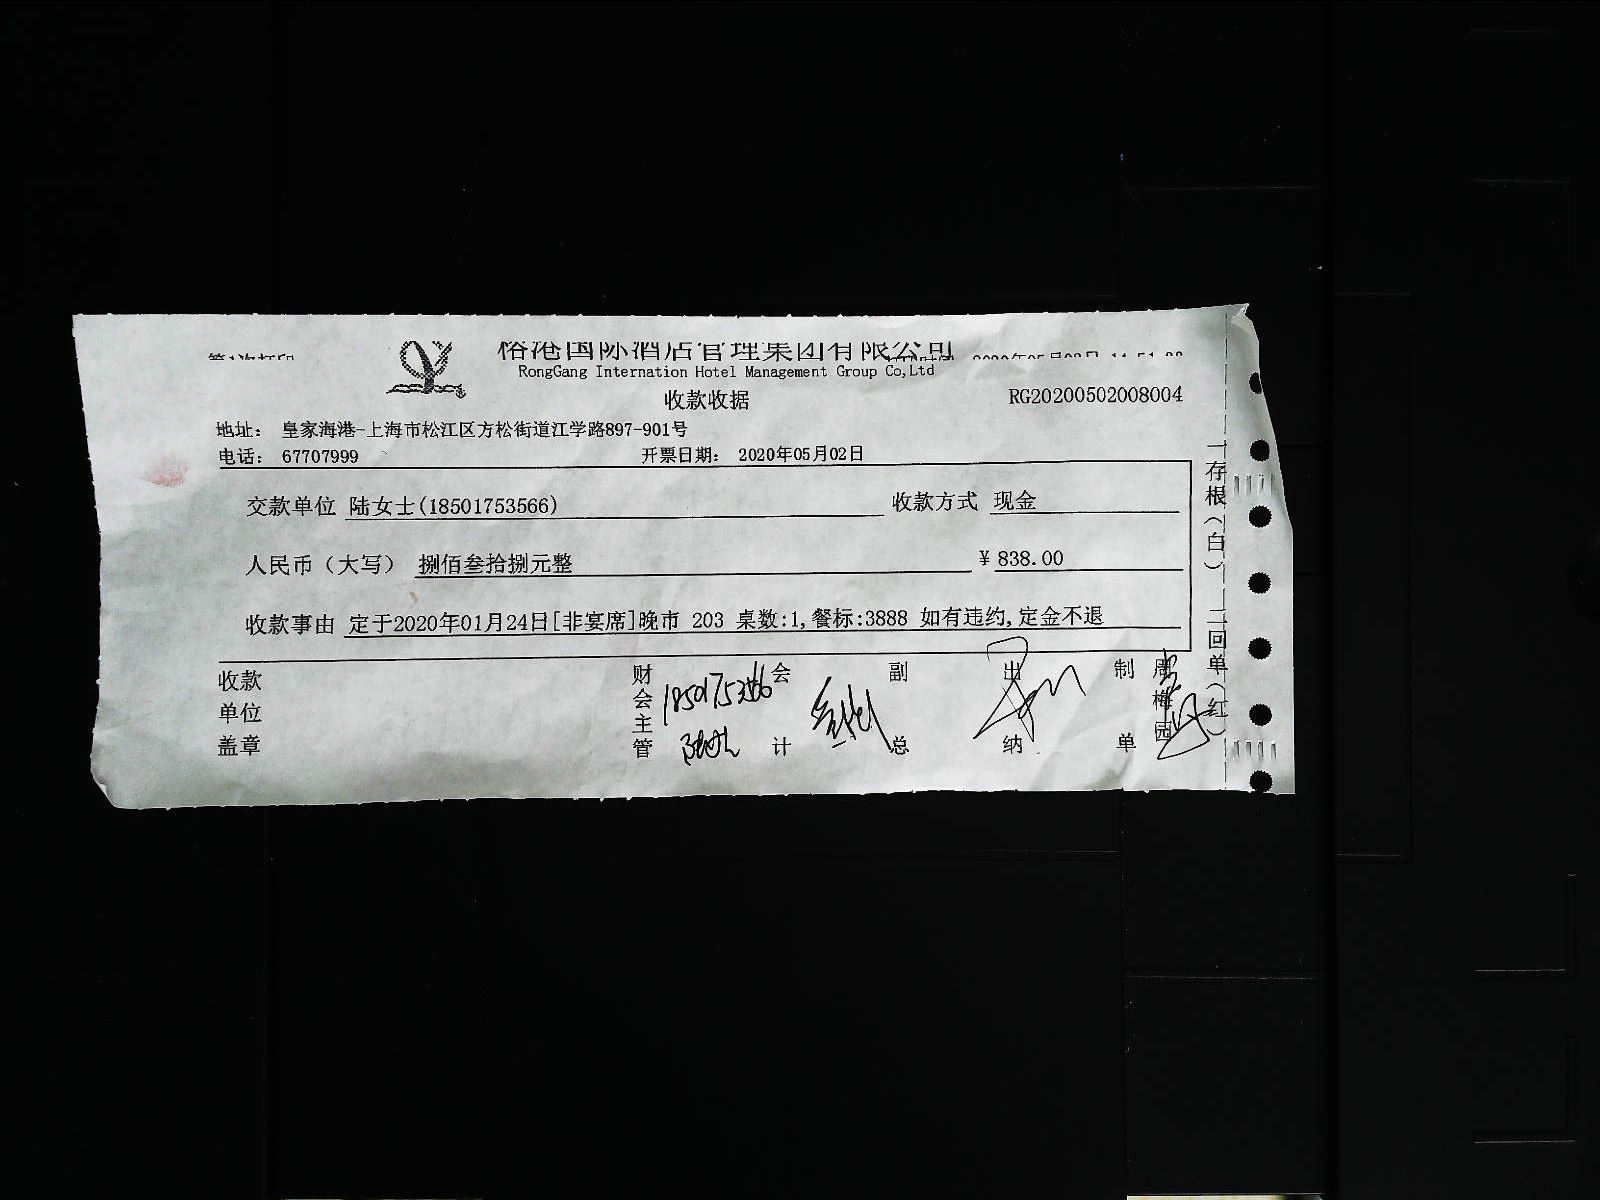 第1次打印
榕港国际酒店管理集团有限公司
RongGang Internation Hotel Management Group Co,Ltd
收款收据
RG20200502008004
地址： 皇家海港-上海市松江区方松街道江学路897-901号
电话： 67707999 开票日期： 2020年05月02日
交款单位 陆女士(18501753566) 收款方式 现金
人民币（大写） 捌佰叁拾捌元整 ¥ 838.00
收款事由 定于2020年01月24日[非宴席]晚市 203 桌数:1,餐标:3888 如有违约,定金不退
收款单位盖章 财会主管 会计 副总 出纳 制单 周梅园
一存根（白） 二回单（红）